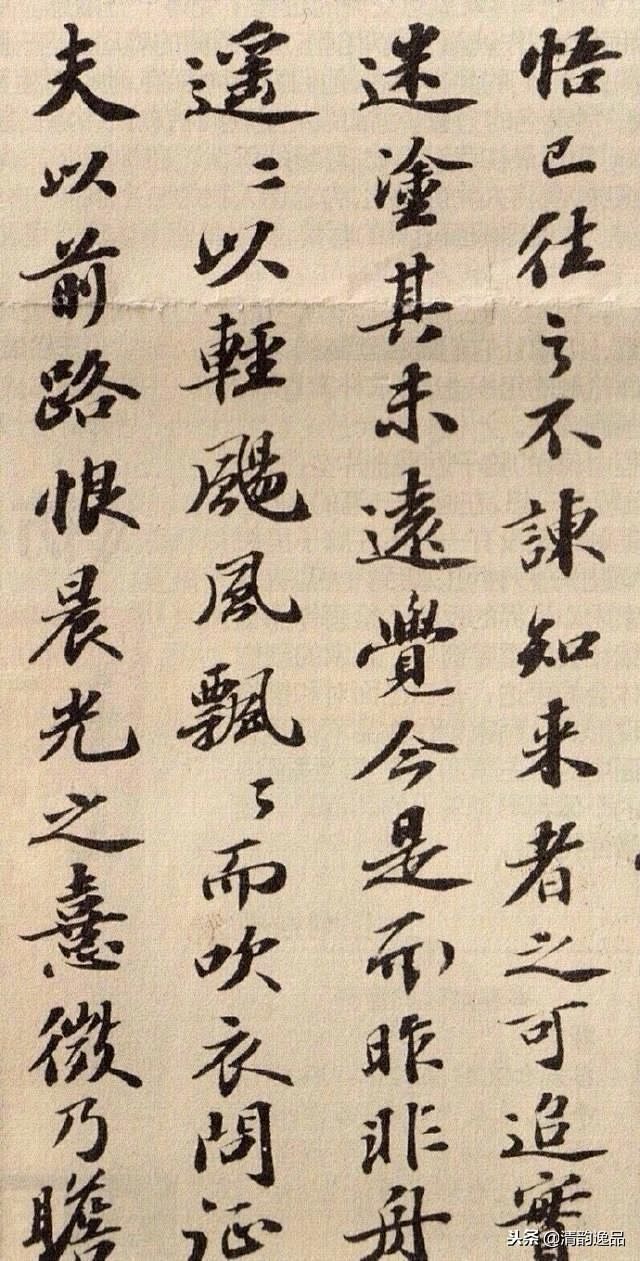 悟已往之不諫知来者之可追實
迷塗其未遠覺今是而昨非舟
遥〻以輕颺風飄〻而吹衣問征
夫以前路恨晨光之憙微乃瞻
头条 @清韵逸品